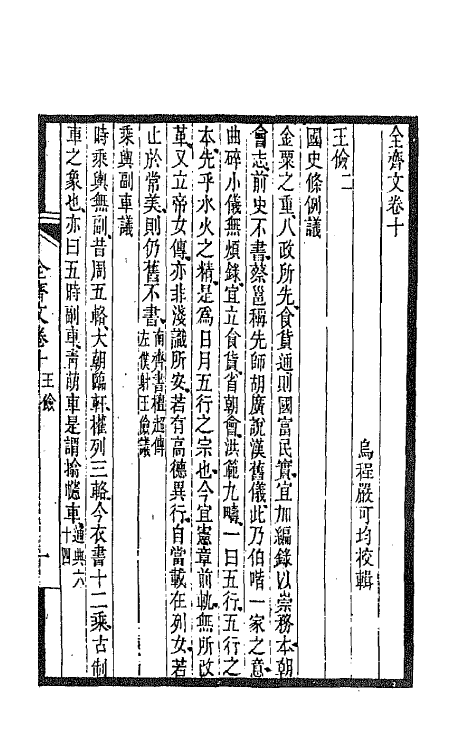 全齊文卷十
烏程嚴可均校輯
王儉二
國史條例議
金粟之重、八政所先、食貨通則國富民實、宜加編錄、以崇務本、朝
會志、前史不書、蔡邕稱先師胡廣說漢舊儀、此乃伯喈一家之意、
曲碎小儀、無煩錄、宜立食貨、省朝會、洪範九疇、一曰五行、五行之
本、先乎水火之精、是為日月五行之宗也、今宜憲章前軌、無所改
革、又立帝女傳、亦非淺識所安、若有高德異行、自當載在列女、若
止於常美、則仍舊不書、南齊書檀超傳左僕射王儉議
乘輿副車議
時乘輿無副、昔周五輅、大朝臨軒、權列三輅、今衣書十二乘、古制
車之象也、亦曰五時副車、青萌車是謂揄幰車、通典六十四
全齊文卷十 王儉 一